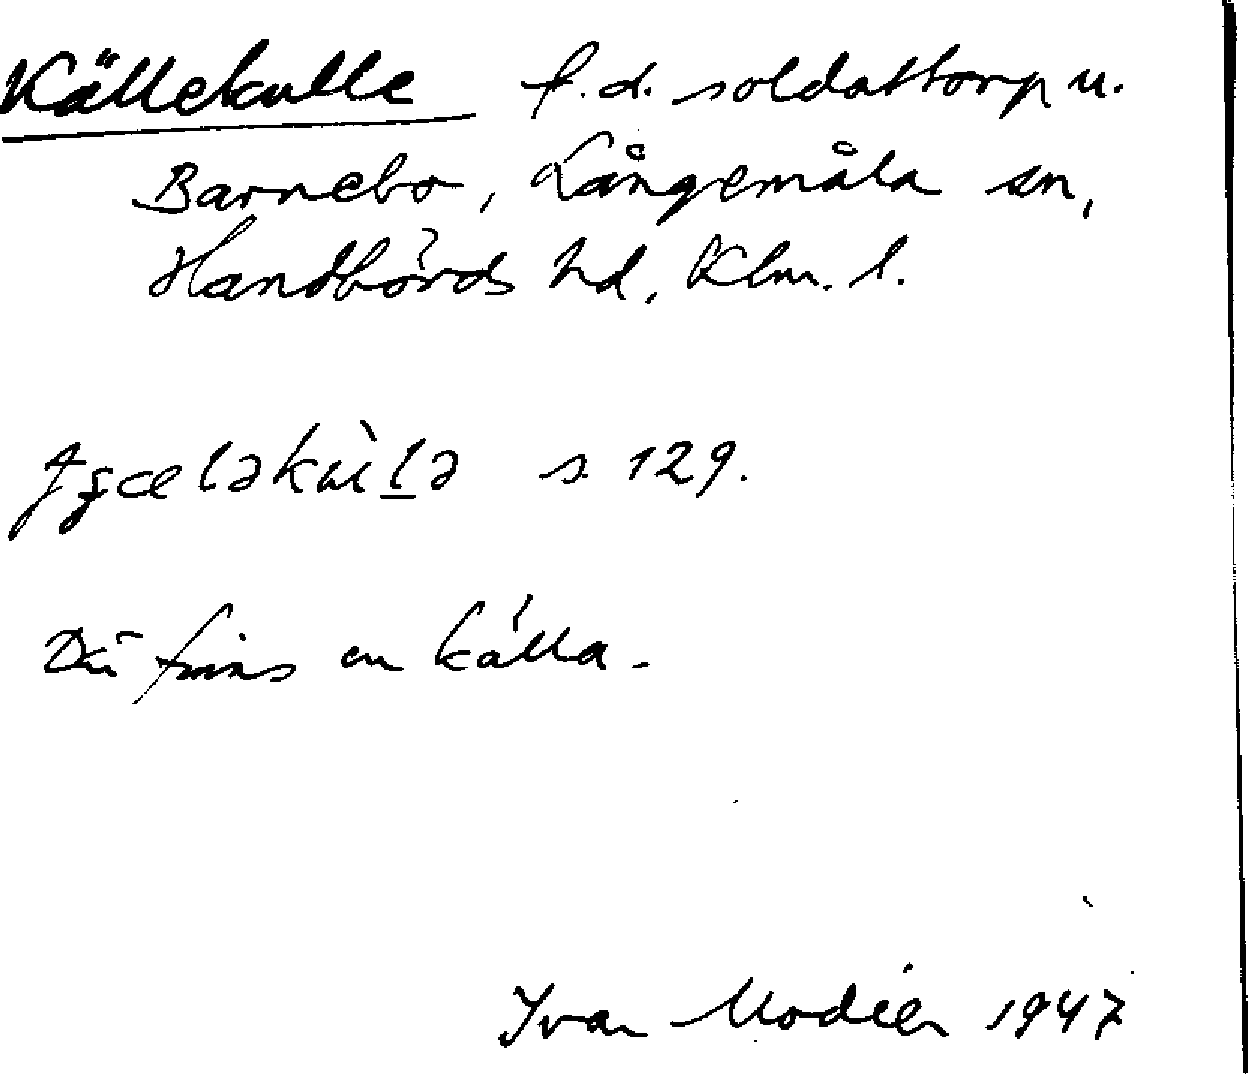 Källekulle f.d. soldattorp u.
Barnebo, Långemåla sn,
Handbörds hd, Klm. l.
s. 129.
Där finns en källa.
Ivar Modéer 1947